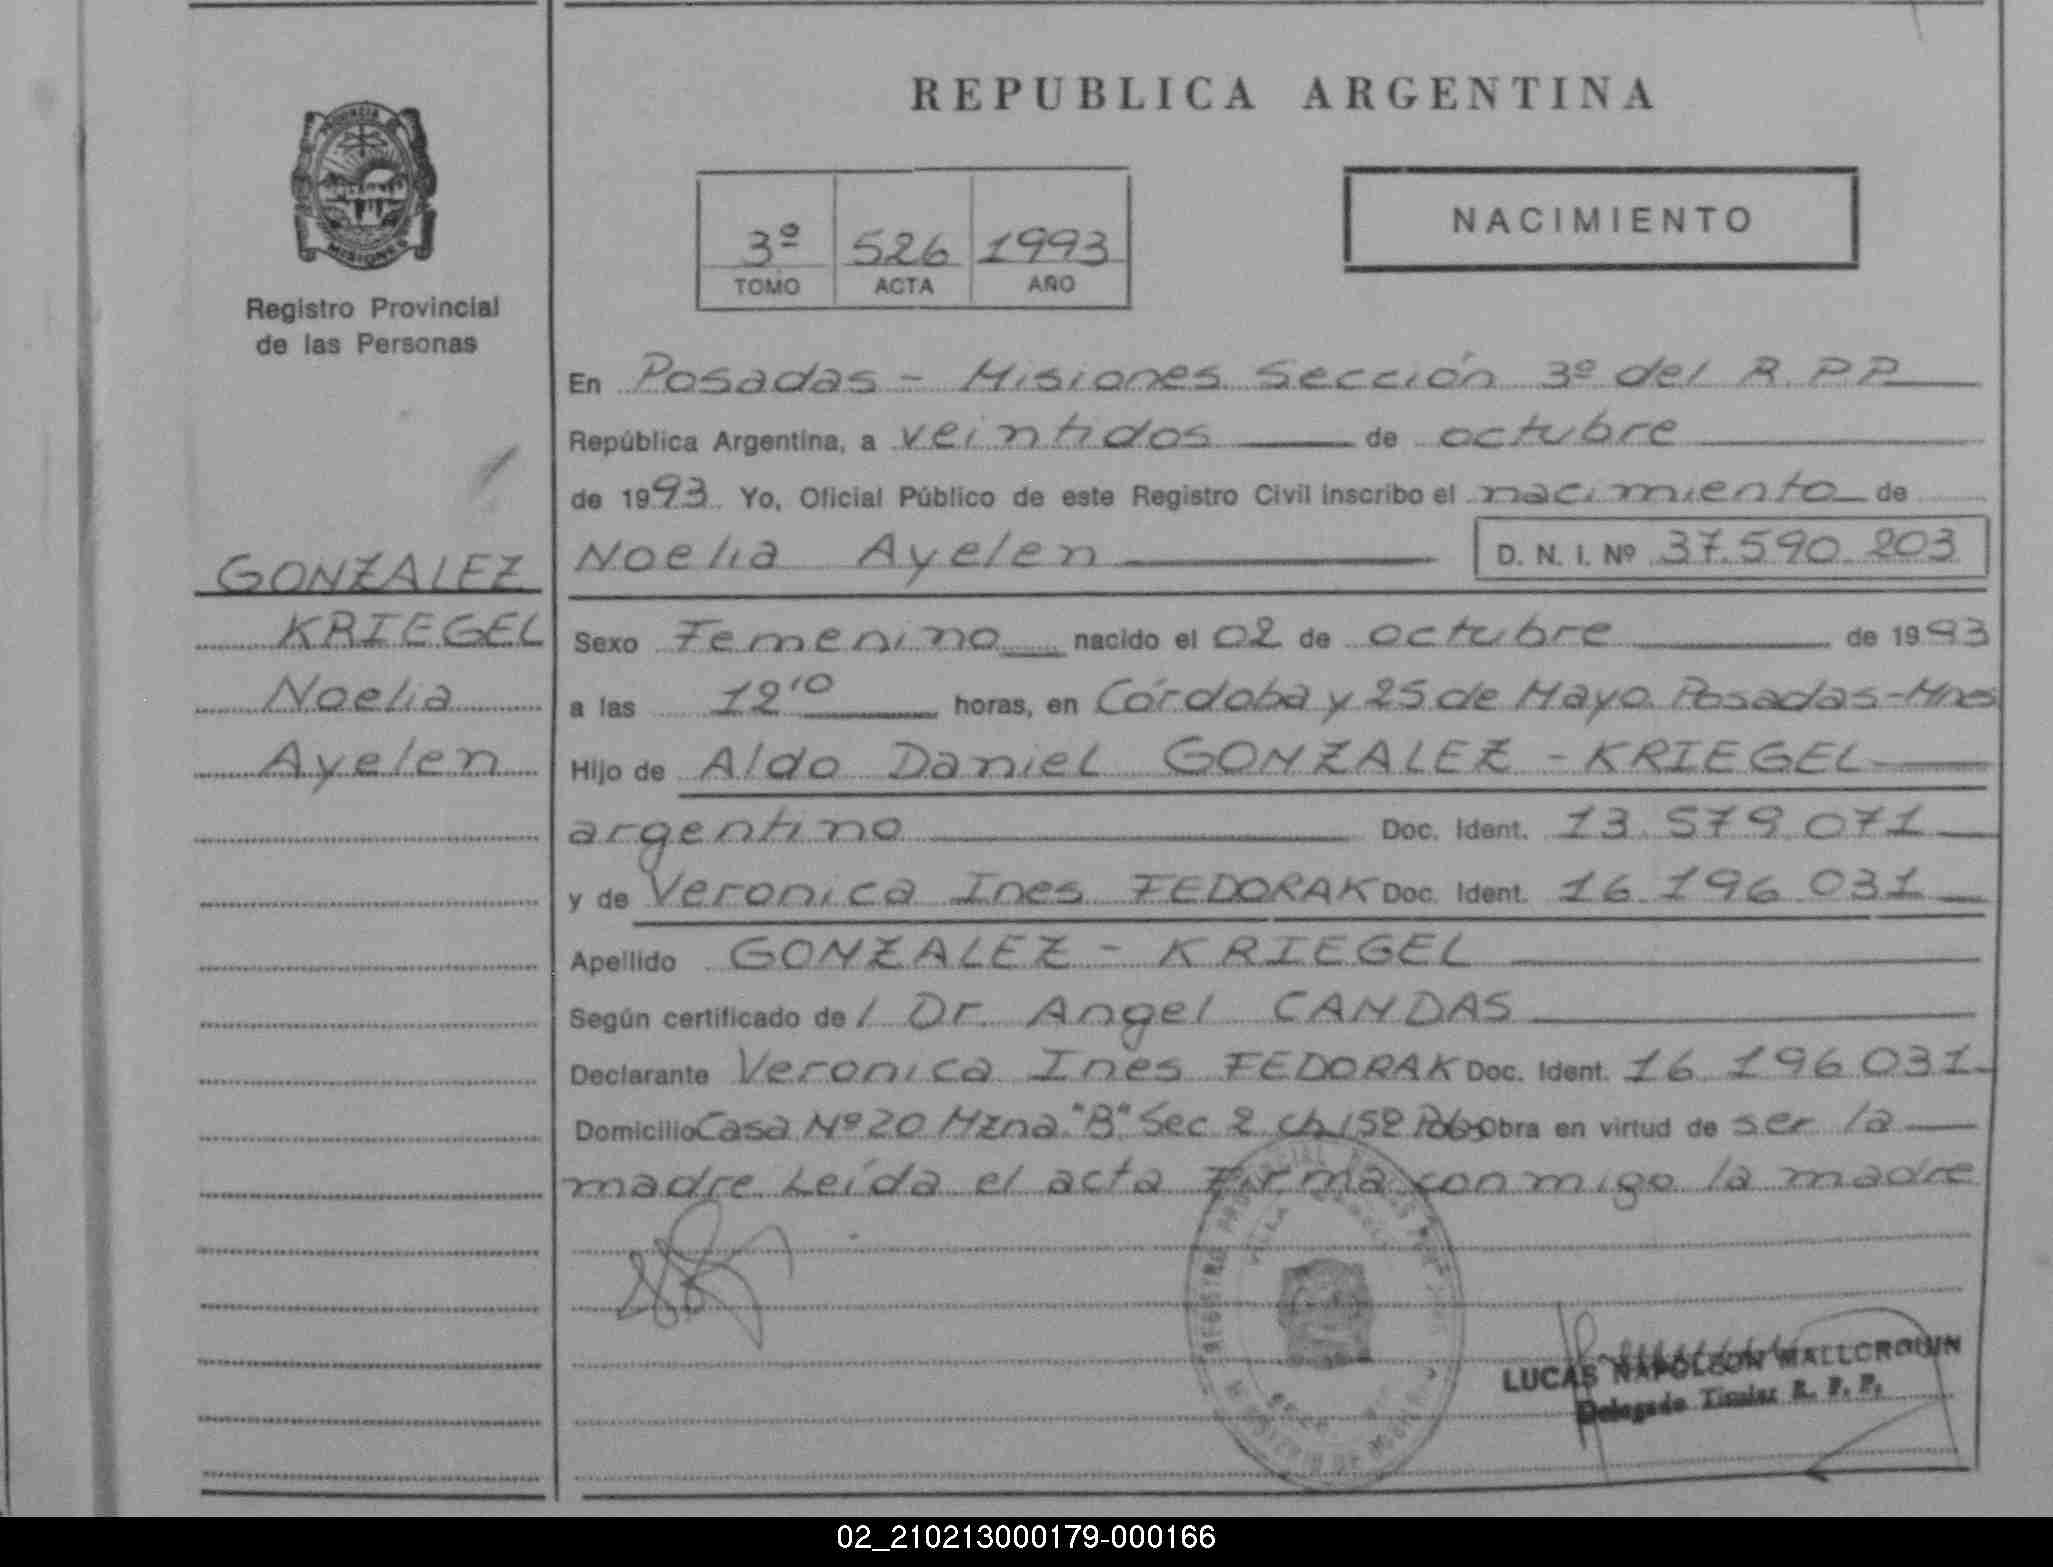 PROVINCIA DE
MISIONES
Registro Provincial
de las Personas
GONZALEZ
KRIEGEL
Noelia
Ayelen
REPUBLICA ARGENTINA
3º 526 1993
TOMO ACTA AÑO
NACIMIENTO
En Posadas - Misiones Sección 3º del R.P.P.
República Argentina, a veintidos de octubre
de 1993 Yo, Oficial Público de este Registro Civil inscribo el nacimiento de
Noelia Ayelen D. N. I. Nº 37.590.203
Sexo Femenino nacido el 02 de octubre de 1993
a las 12'10 horas, en Córdoba y 25 de Mayo Posadas-Mnes
Hijo de Aldo Daniel GONZALEZ - KRIEGEL
argentino Doc. Ident. 13.579.071
y de Veronica Ines FEDORAK Doc. Ident. 16.196.031
Apellido GONZALEZ - KRIEGEL
Según certificado del Dr. Angel CANDAS
Declarante Veronica Ines FEDORAK Doc. Ident. 16.196.031
Domicilio Casa Nº 20 Mzna "B" Sec 2 ch 152 Obra en virtud de ser la
madre Leída el acta Firma conmigo la madre
LUCAS NAPOLEON MALLCROUIN
Delegado Titular R. P. P.
02_210213000179-000166